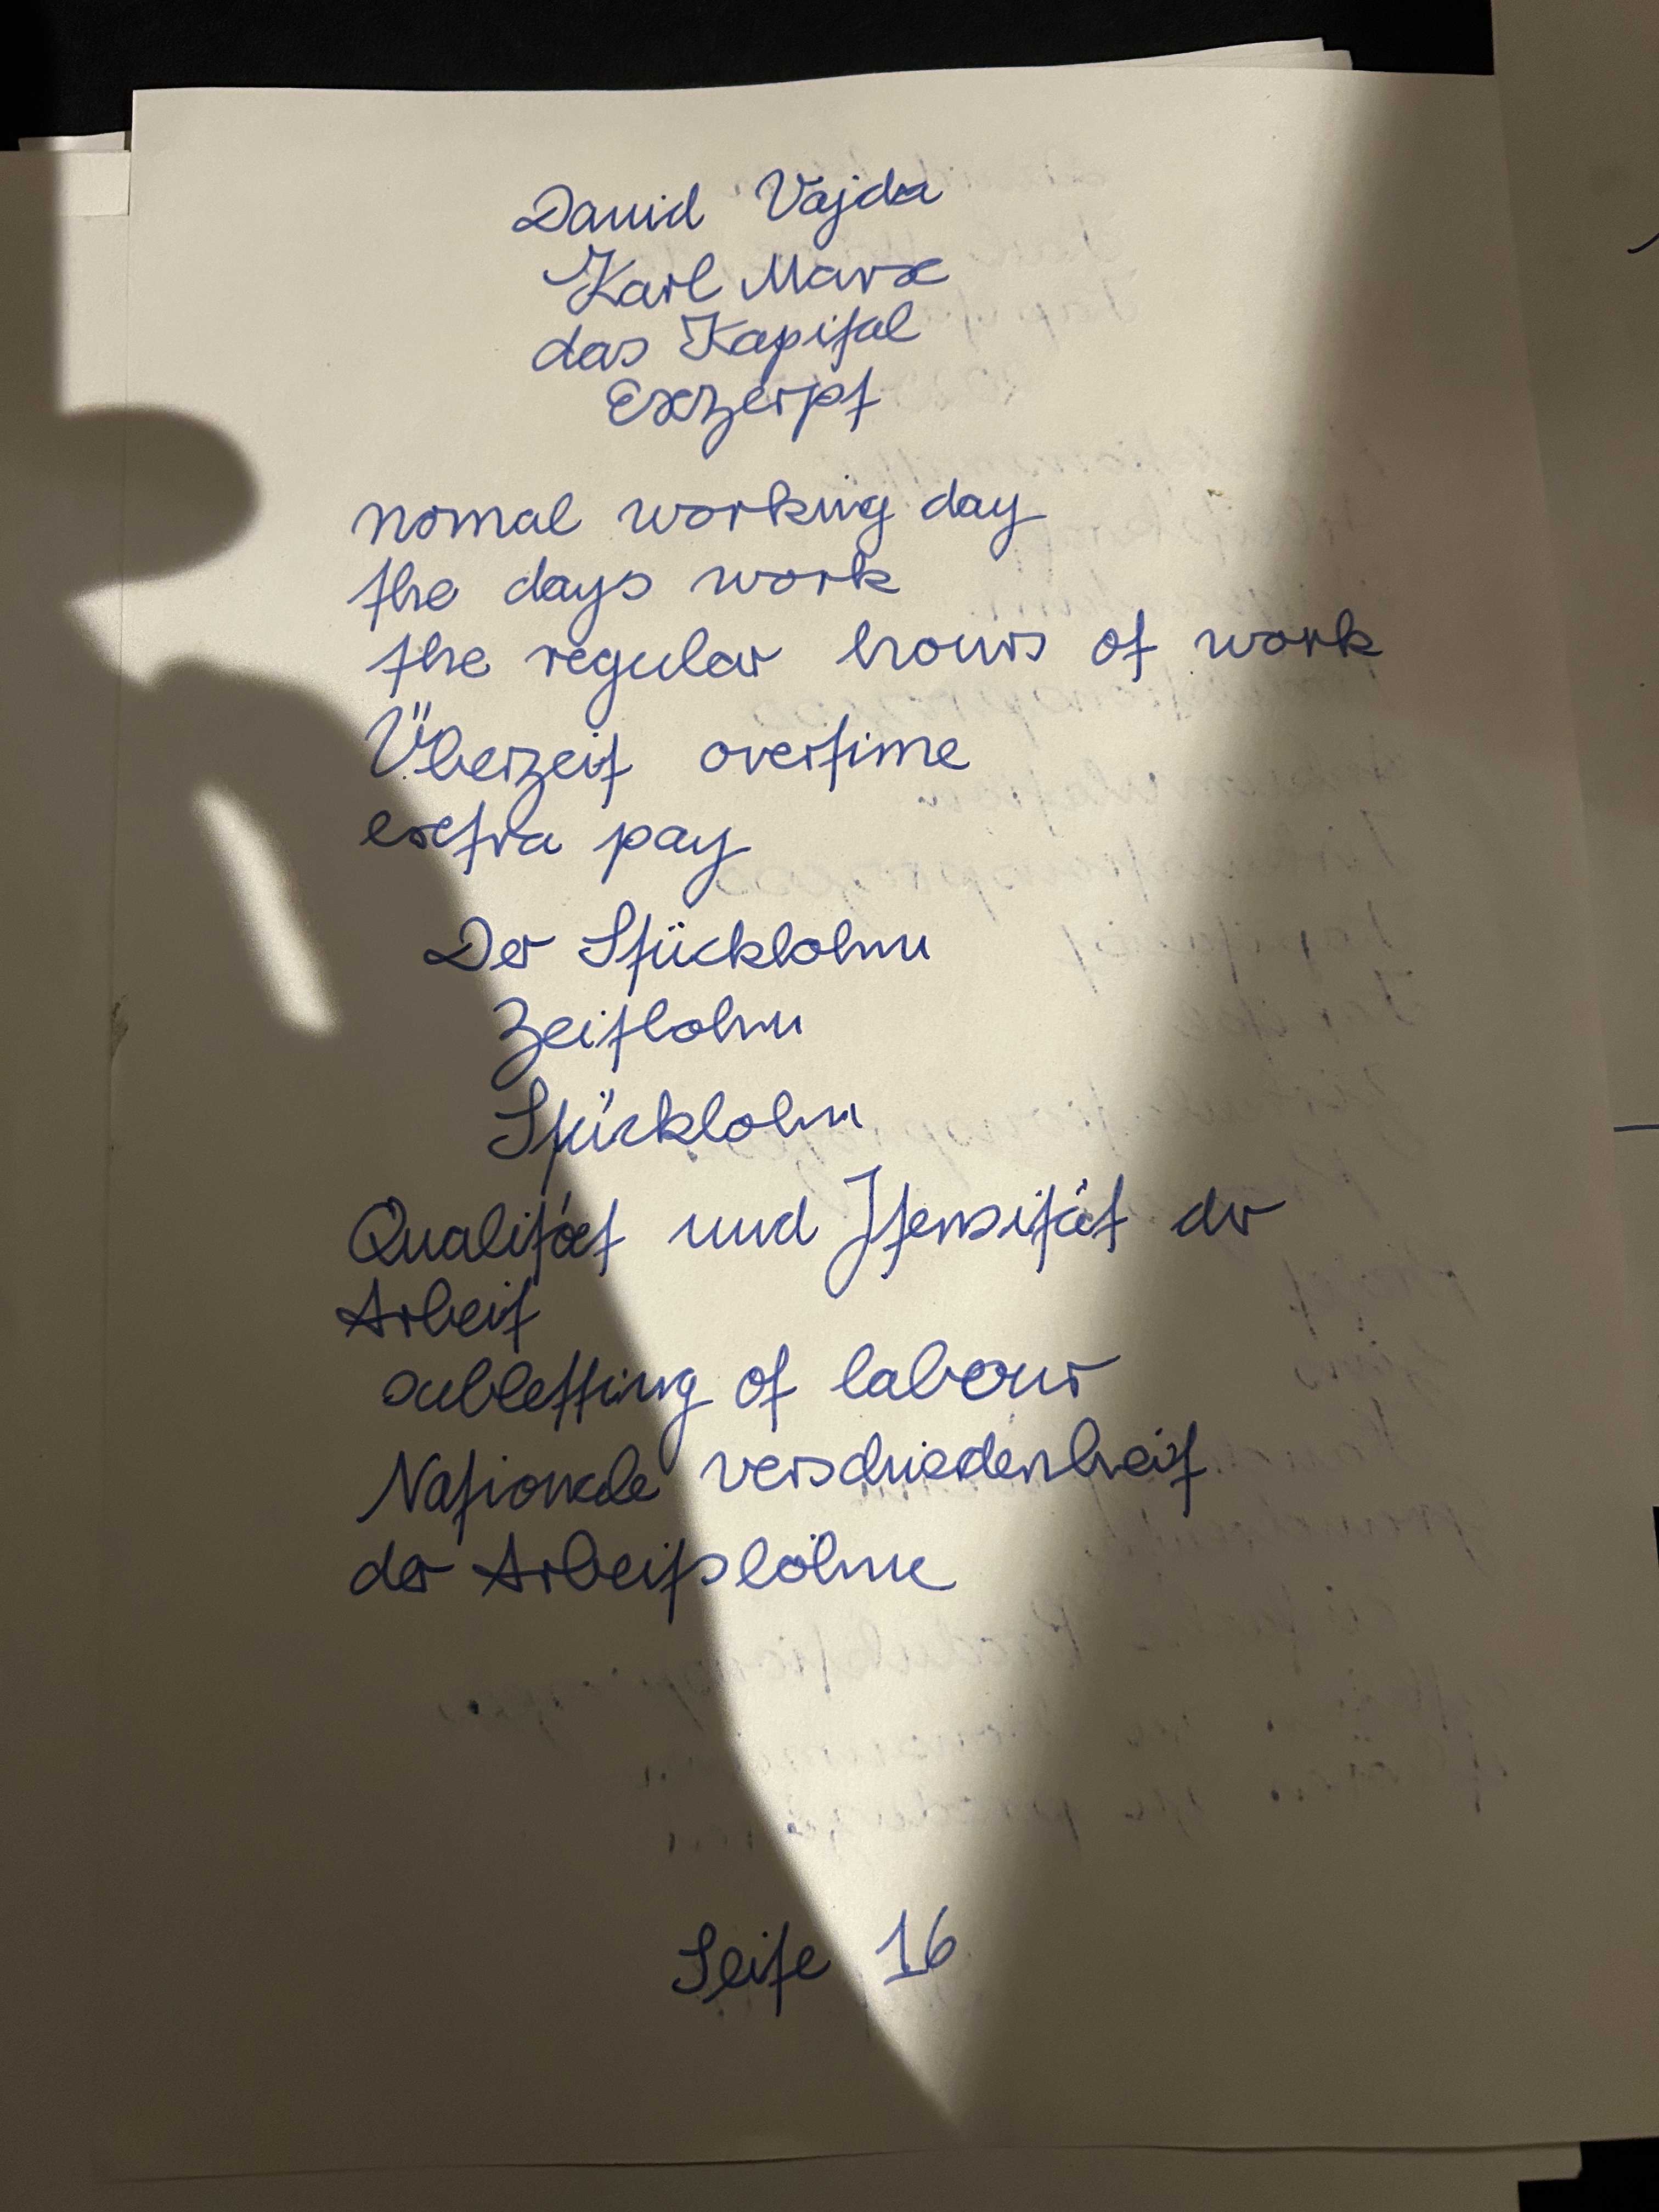 David Vajda
Karl Marx
das Kapital
Exzerpt
nomal working day
the days work
the regular hours of work
Überzeit overtime
extra pay
Der Stücklohn
Zeitlohn
Stücklohn
Qualität und Itensität der
Arbeit
subletting of labour
Nationale verschiedenheit
der Arbeitslöhne
Seite 16